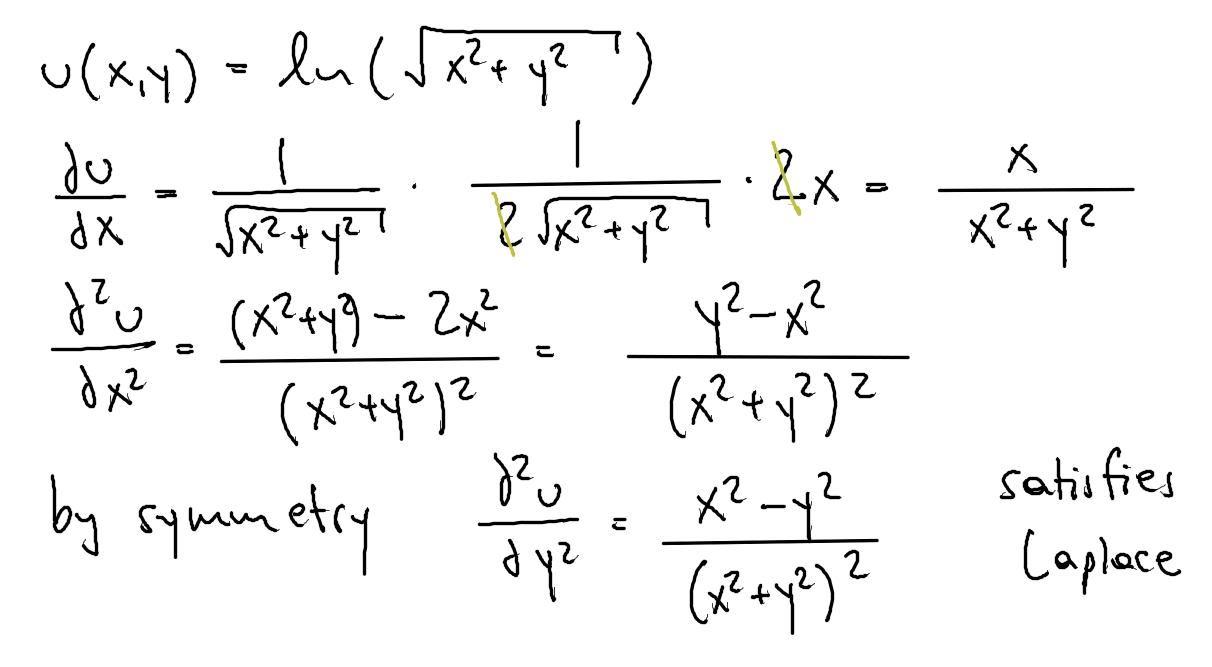 u(x,y) = ln(√(x²+y²))
∂u/∂x = 1/√(x²+y²) · 1/(2√(x²+y²)) · 2x = x/(x²+y²)
∂²u/∂x² = ((x²+y²) − 2x²)/(x²+y²)² = (y²−x²)/(x²+y²)²
by symmetry ∂²u/∂y² = (x²−y²)/(x²+y²)² satisfies Laplace